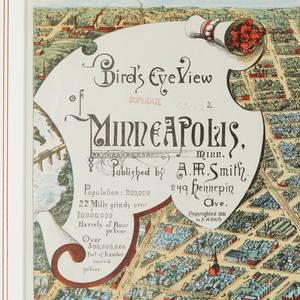 Bird's Eye View
DUPLICATE
of
MINNEAPOLIS,
MINN.
Published by A. M. Smith,
249 Hennepin
Ave.
Population: 200,000
22 Mills grinds over
10,000,000
Barrels of Flour
pr Year.
Over
300,000,000
feet of lumber
sawed
pr Year.
Copyrighted 1891
by A. M. Smith